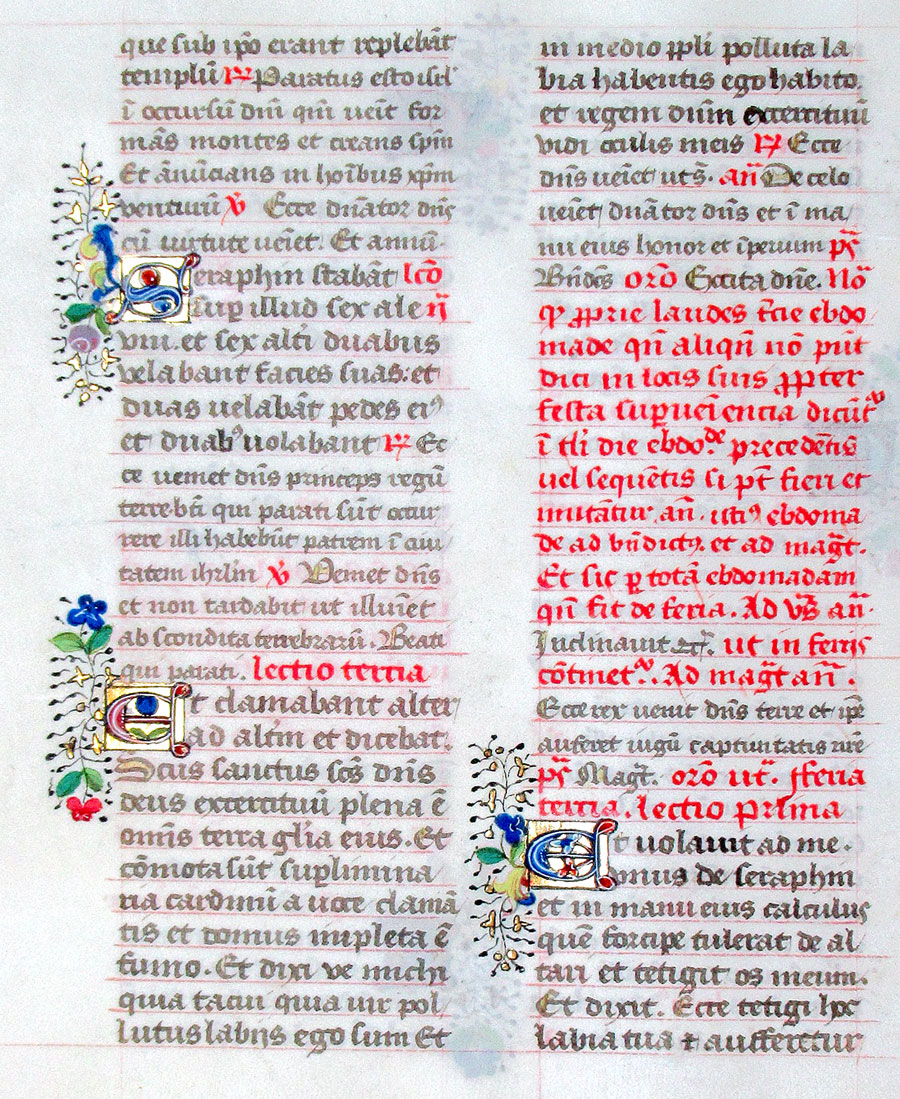 que sub ip̄o erant replebāt
templū R̸ Paratus esto isrl̄
ī occursū dn̄i qm̄ ueīt for
mās montes et creans sp̄m
Et ānūcians in hoībus xp̄m
venturū v̸ Ecce dn̄ator dn̄s
cū uirtute ueīet. Et annū.
Seraphin stabāt lc̄o
sup̱ illud sex ale ij
uni. et sex alt̄i duabus
velabant facies suas: et
duas uelabāt pedes eiꝰ
et duabꝰ uolabant R̸ Ec
ce ueniet dn̄s princeps regū
terre. btī qui parati sūt occur
rere illi habebūt partem ī ciui
tatem ihrl̄m v̸ Veniet dn̄s
et non tardabit ut illuīet
abscondita tenebrarū. Beati
qui parati. lectio tercia
Et clamabant alter
ad alt̄m et dicebāt.
Sc̄us sanctus sc̄s dn̄s
deus exercituū plena ē
om̄is terra gl̄ia eius. Et
cōmota sūt sup̱limina
ria cardinū a uoce clamā
tis et domus impleta ē
fumo. Et dixi ve michi
quia tacui quia uir pol
lutus labijs ego sum Et
in medio pp̄li polluta la
bia habentis ego habito.
et regem dn̄m exercituū
vidi oculis meis R̸ Ecce
dn̄s ueīet ut s̄. an̄ De celo
ueīet dn̄ator dn̄s et ī ma
nu eius honor et īperium ps̄
Bn̄dc̄s orō Excita dn̄e. Nō
ꝙ ꝓprie laudes t̄cie ebdo
made qn̄ aliqn̄ nō pn̄t
dici in locis suis ꝓpter
festa sup̱ueīencia dicūtᵘʳ
ī tl̄i die ebdo.ᵈᵉ precedētis
vel sequētis si pt̄ fieri et
mutātur an̄. istiꝰ ebdoma
de ad bn̄dictꝰ. et ad mag̅t.
Et sic p̱ totā ebdomadam
qn̄ fit de feria. Ad vs̄ an̄.
Inclinauit ⁊c̄. ut in ferijs
cōtinetᵘʳ. Ad mag̅t an̄.
Ecce rex uenit dn̄s terre et ip̄e
auferet iugū captiuitatis nr̄e
ps̄ Mag̅t. orō ut s̄. ¶feria
tercia. lectio prima
Et uolauit ad me.
vnus de seraphin
et in manu eius calculus
quē forcipe tulerat de al
tari et tetigit os meum.
Et dixit. Ecce tetigi hoc
labia tua ⁊ aufferetur